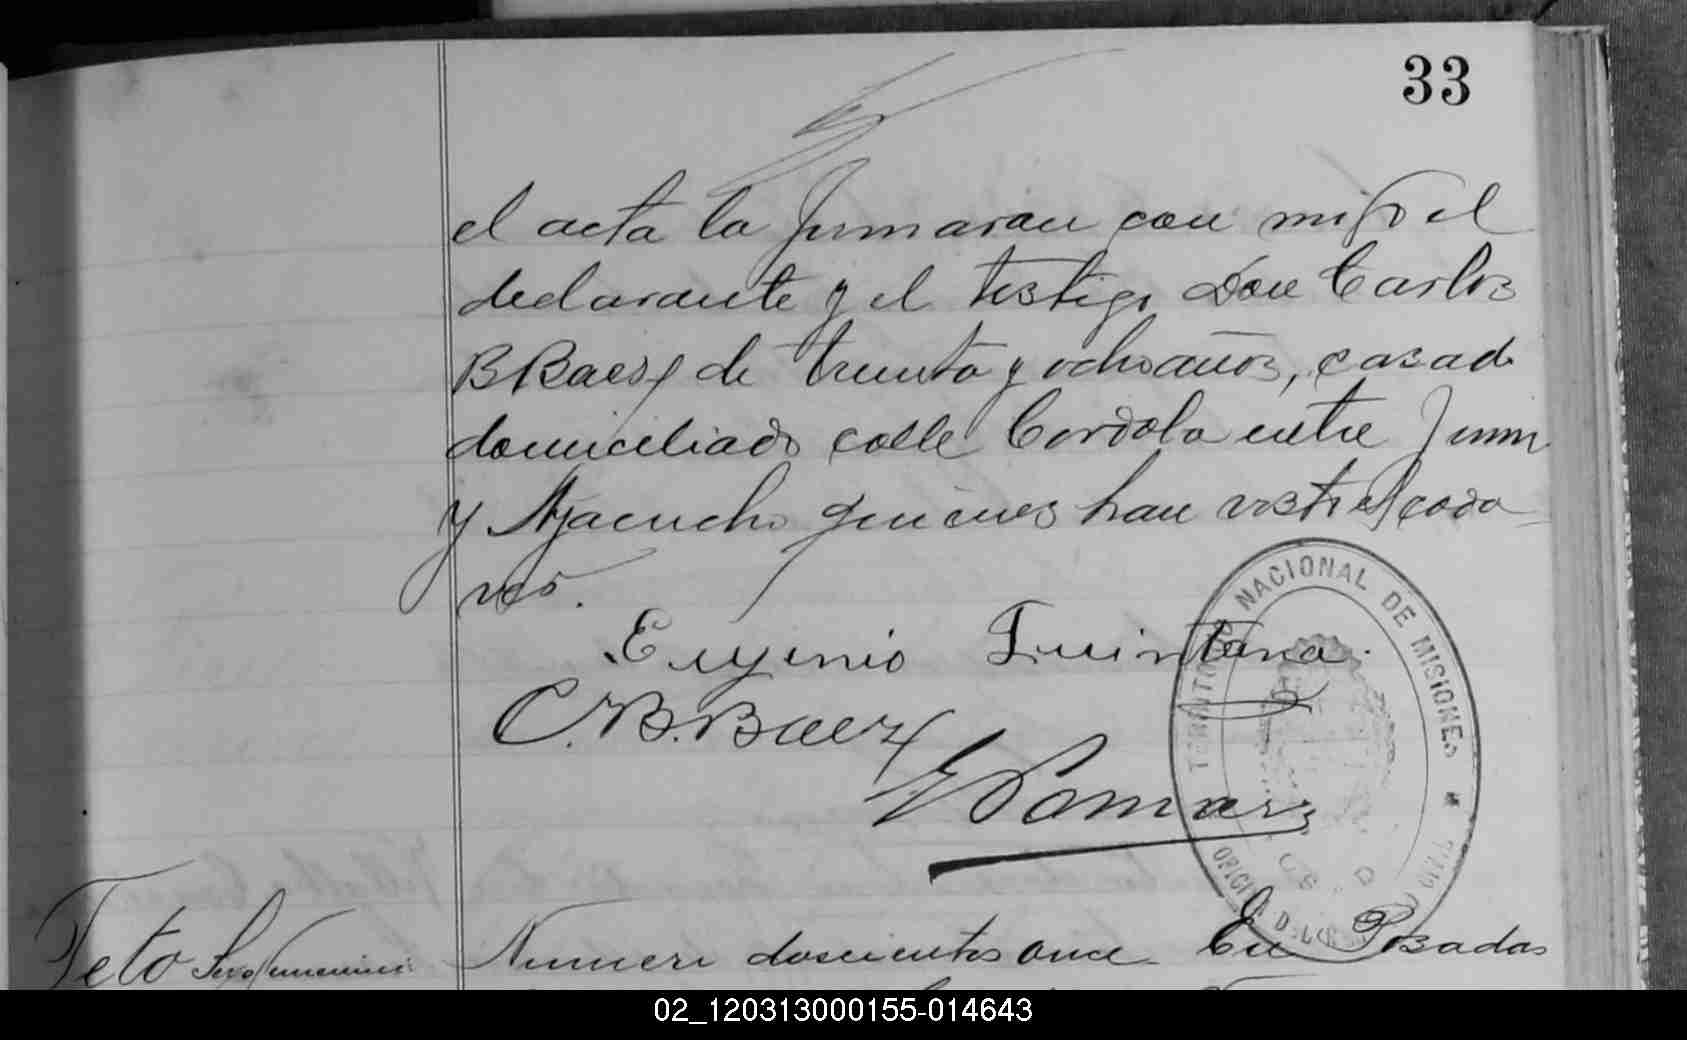 33
el acta la firmaran con migo el
declarante y el testigo Don Carlos
B Baez de treinta y ocho años, casado
domiciliado calle Cordoba entre Junin
y Ayacucho quienes han visto el cada
ver.
Eugenio Quintana.
C. B. Baez
TERRITORIO NACIONAL DE MISIONES
OFICINA DEL
Feto Sexo femenino
Numero doscientos once En Posadas
02_120313000155-014643